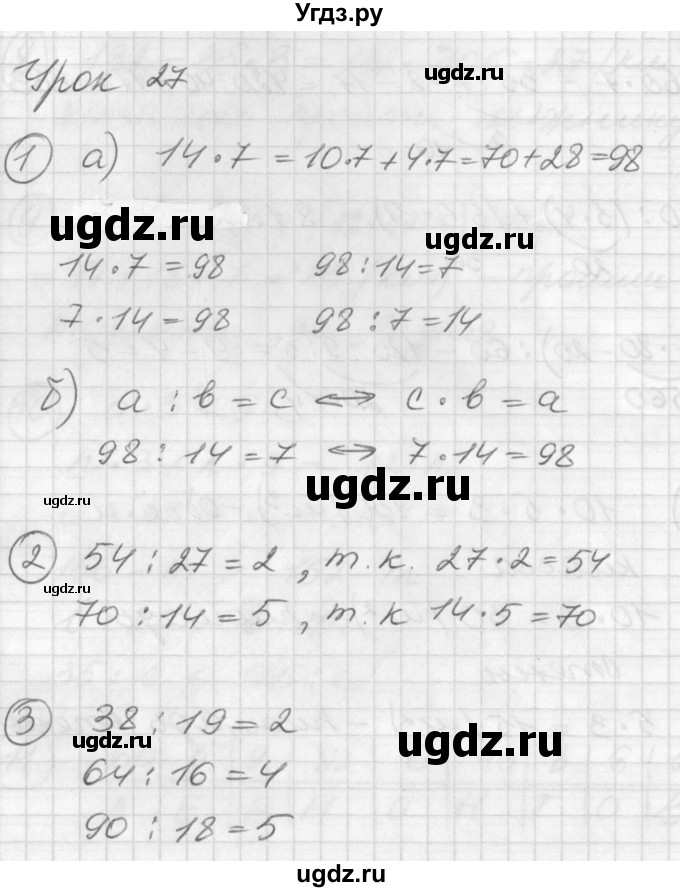 Угдз.ру
Урок 27
ugdz.ru
1 а) 14·7 = 10·7+4·7=70+28=98
ugdz.ru
ugdz.ru
14·7 = 98 98:14=7
7·14=98 98:7=14
б) а : в = с ⟺ с · в = а
98 : 14 = 7 ⟺ 7·14=98
ugdz.ru
ugdz.ru
2 54 : 27 = 2, т.к. 27·2=54
ugdz.ru
70 : 14 = 5, т.к 14·5=70
3 38 : 19 = 2
ugdz.ru
ugdz.ru
64 : 16 = 4
90 : 18 = 5
ugdz.ru